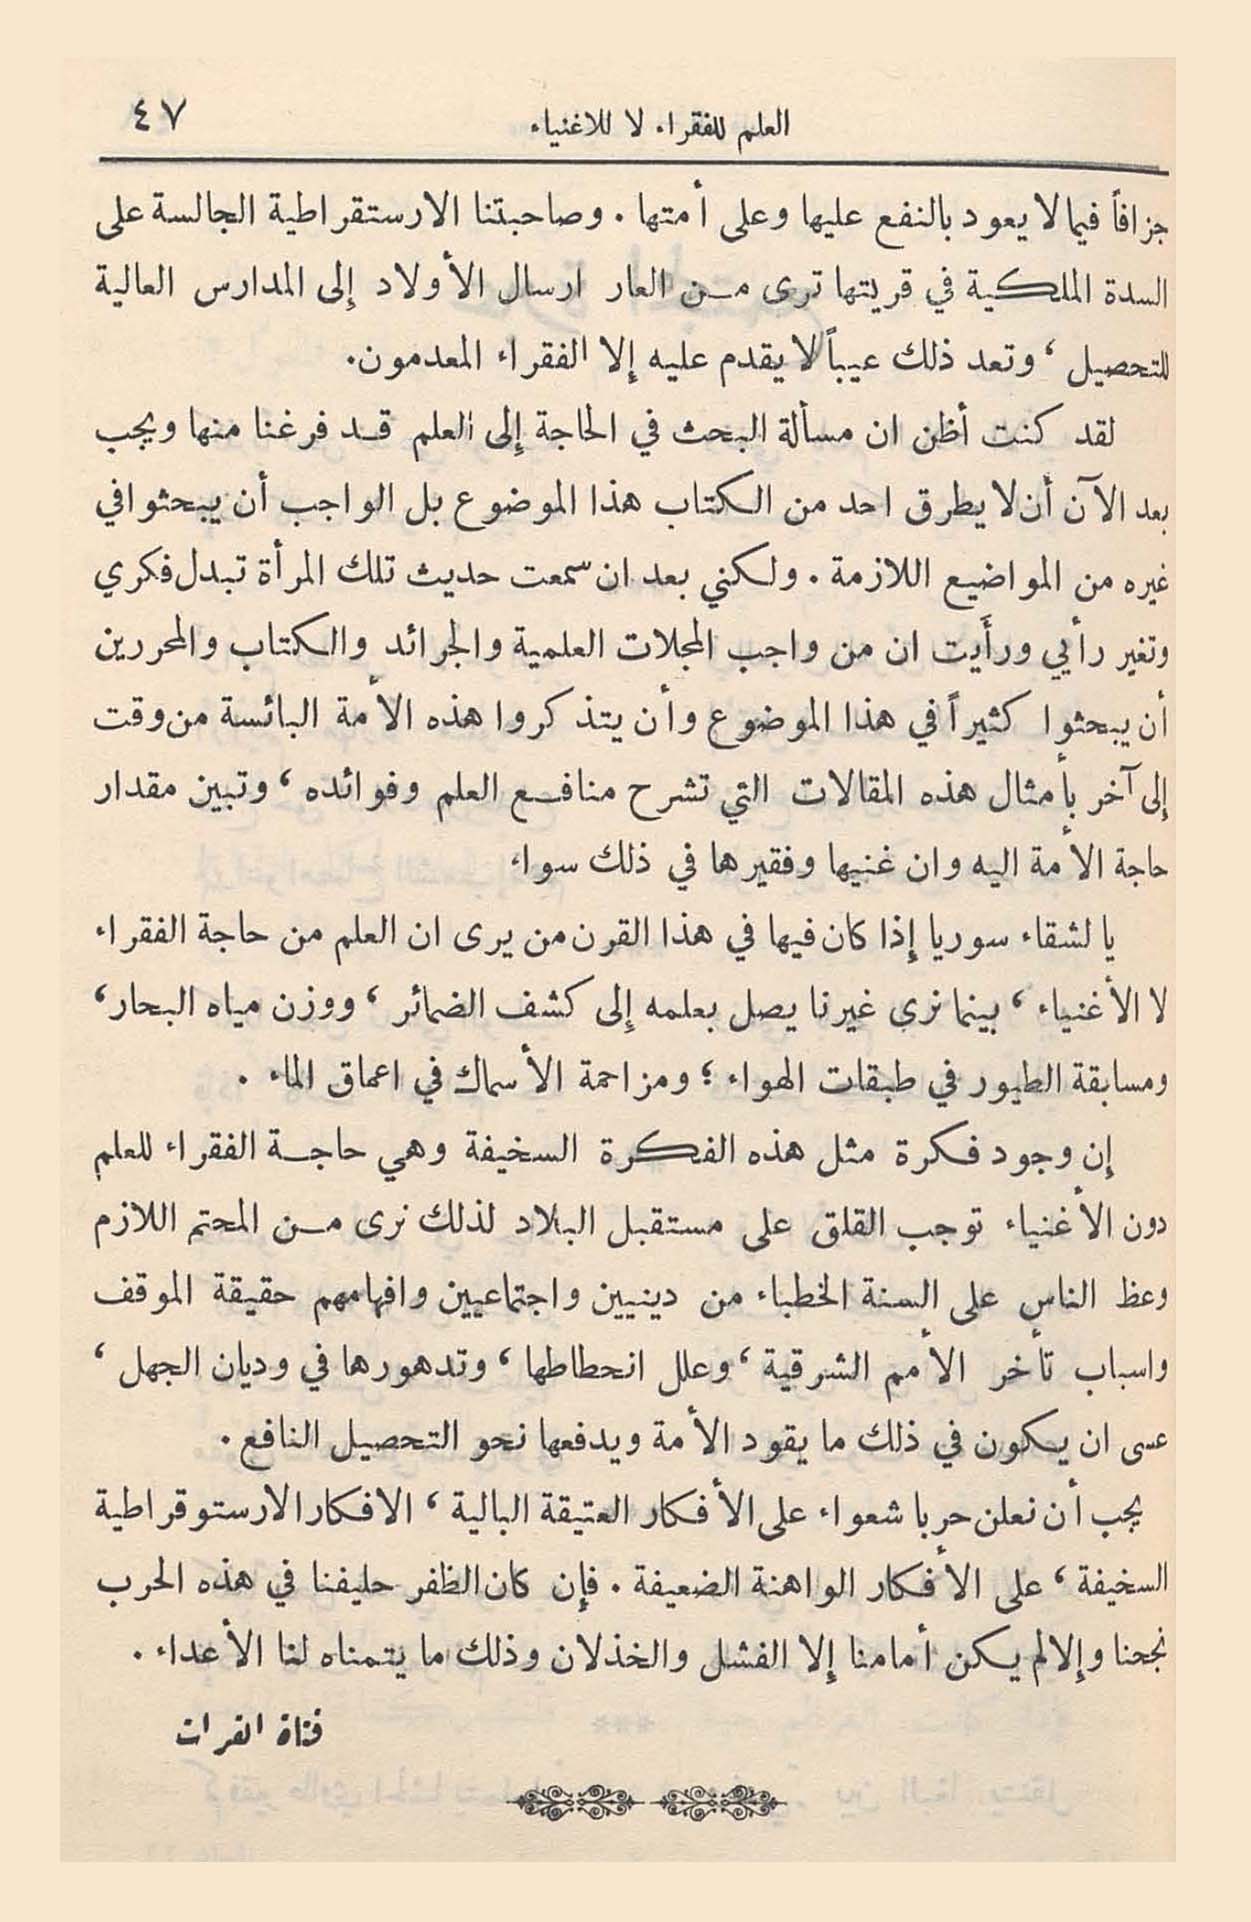 العلم للفقراء لا للاغنياء ٤٧
جزافاً فيما لا يعود بالنفع عليها وعلى أمتها . وصاحبتنا الارستقراطية الجالسة على
السدة الملكية في قريتها ترى من العار ارسال الأولاد إلى المدارس العالية
للتحصيل ، وتعد ذلك عيباً لا يقدم عليه إلا الفقراء المعدمون .
لقد كنت أظن ان مسألة البحث في الحاجة إلى العلم قد فرغنا منها ويجب
بعد الآن أن لا يطرق احد من الكتاب هذا الموضوع بل الواجب أن يبحثوا في
غيره من المواضيع اللازمة . ولكني بعد ان سمعت حديث تلك المرأة تبدل فكري
وتغير رأيي ورأَيت ان من واجب المجلات العلمية والجرائد والكتاب والمحررين
أن يبحثوا كثيراً في هذا الموضوع وأن يتذكروا هذه الأمة البائسة من وقت
إلى آخر بأمثال هذه المقالات التي تشرح منافع العلم وفوائده ، وتبين مقدار
حاجة الأمة اليه وان غنيها وفقيرها في ذلك سواء
يا لشقاء سوريا إذا كان فيها في هذا القرن من يرى ان العلم من حاجة الفقراء
لا الأغنياء ، بينما نرى غيرنا يصل بعلمه إلى كشف الضمائر ، ووزن مياه البحار ،
ومسابقة الطيور في طبقات الهواء ؛ ومزاحمة الأسماك في اعماق الماء .
إن وجود فكرة مثل هذه الفكرة السخيفة وهي حاجة الفقراء للعلم
دون الأغنياء توجب القلق على مستقبل البلاد لذلك نرى من المحتم اللازم
وعظ الناس على السنة الخطباء من دينيين واجتماعيين وافهامهم حقيقة الموقف
واسباب تأخر الأمم الشرقية ، وعلل انحطاطها ، وتدهورها في وديان الجهل ،
عسى ان يكون في ذلك ما يقود الأمة ويدفعها نحو التحصيل النافع .
يجب أن نعلن حربا شعواء على الأفكار العتيقة البالية ، الافكار الارستوقراطية
السخيفة ، على الأفكار الواهنة الضعيفة . فإن كان الظفر حليفنا في هذه الحرب
نجحنا وإلا لم يكن أمامنا إلا الفشل والخذلان وذلك ما يتمناه لنا الأعداء .
فتاة الفرات